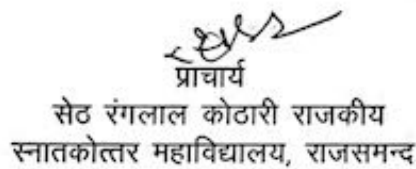 प्राचार्य
सेठ रंगलाल कोठारी राजकीय
स्नातकोत्तर महाविद्यालय, राजसमन्द